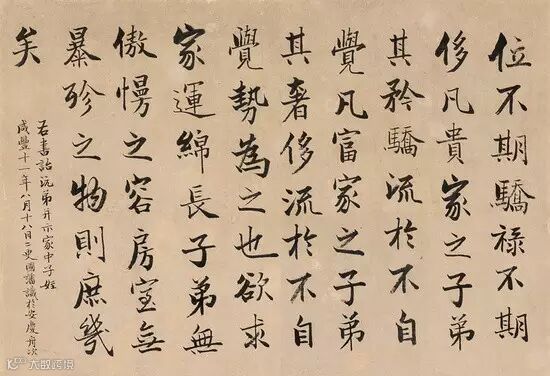 位不期驕禄不期
侈凡貴家之子弟
其矜驕流於不自
覺凡富家之子弟
其奢侈流於不自
覺勢為之也欲求
家運綿長子弟無
傲慢之容房室無
暴殄之物則庶幾
矣
右書詒沅弟并示家中子姪
咸豐十一年八月十八日二更國藩識於安慶舟次
大数跨境